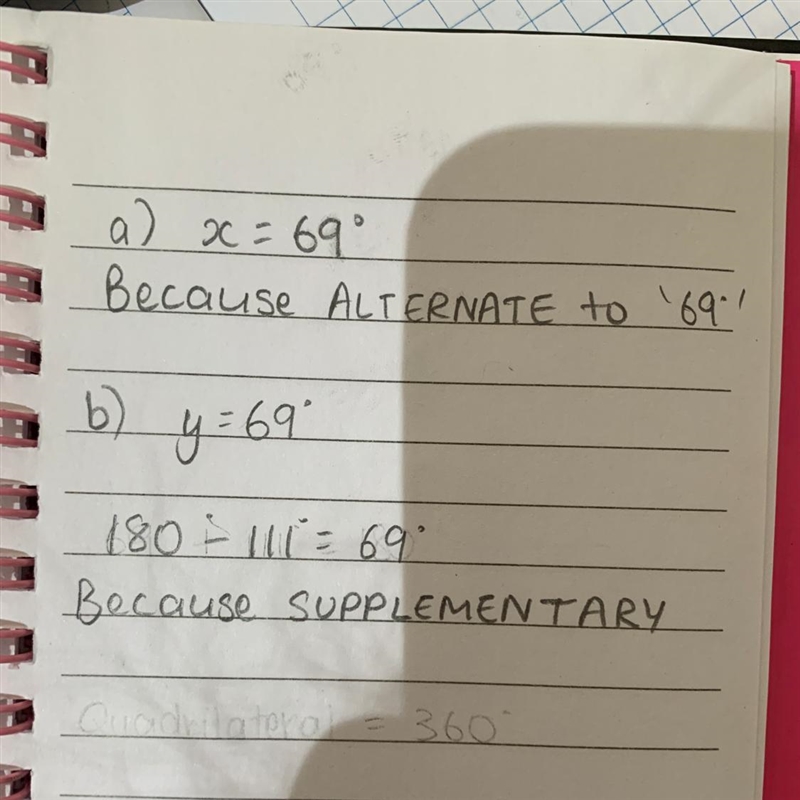 a) x = 69°
Because ALTERNATE to '69°'
b) y = 69°
180° - 111° = 69°
Because SUPPLEMENTARY
Quadrilateral = 360°